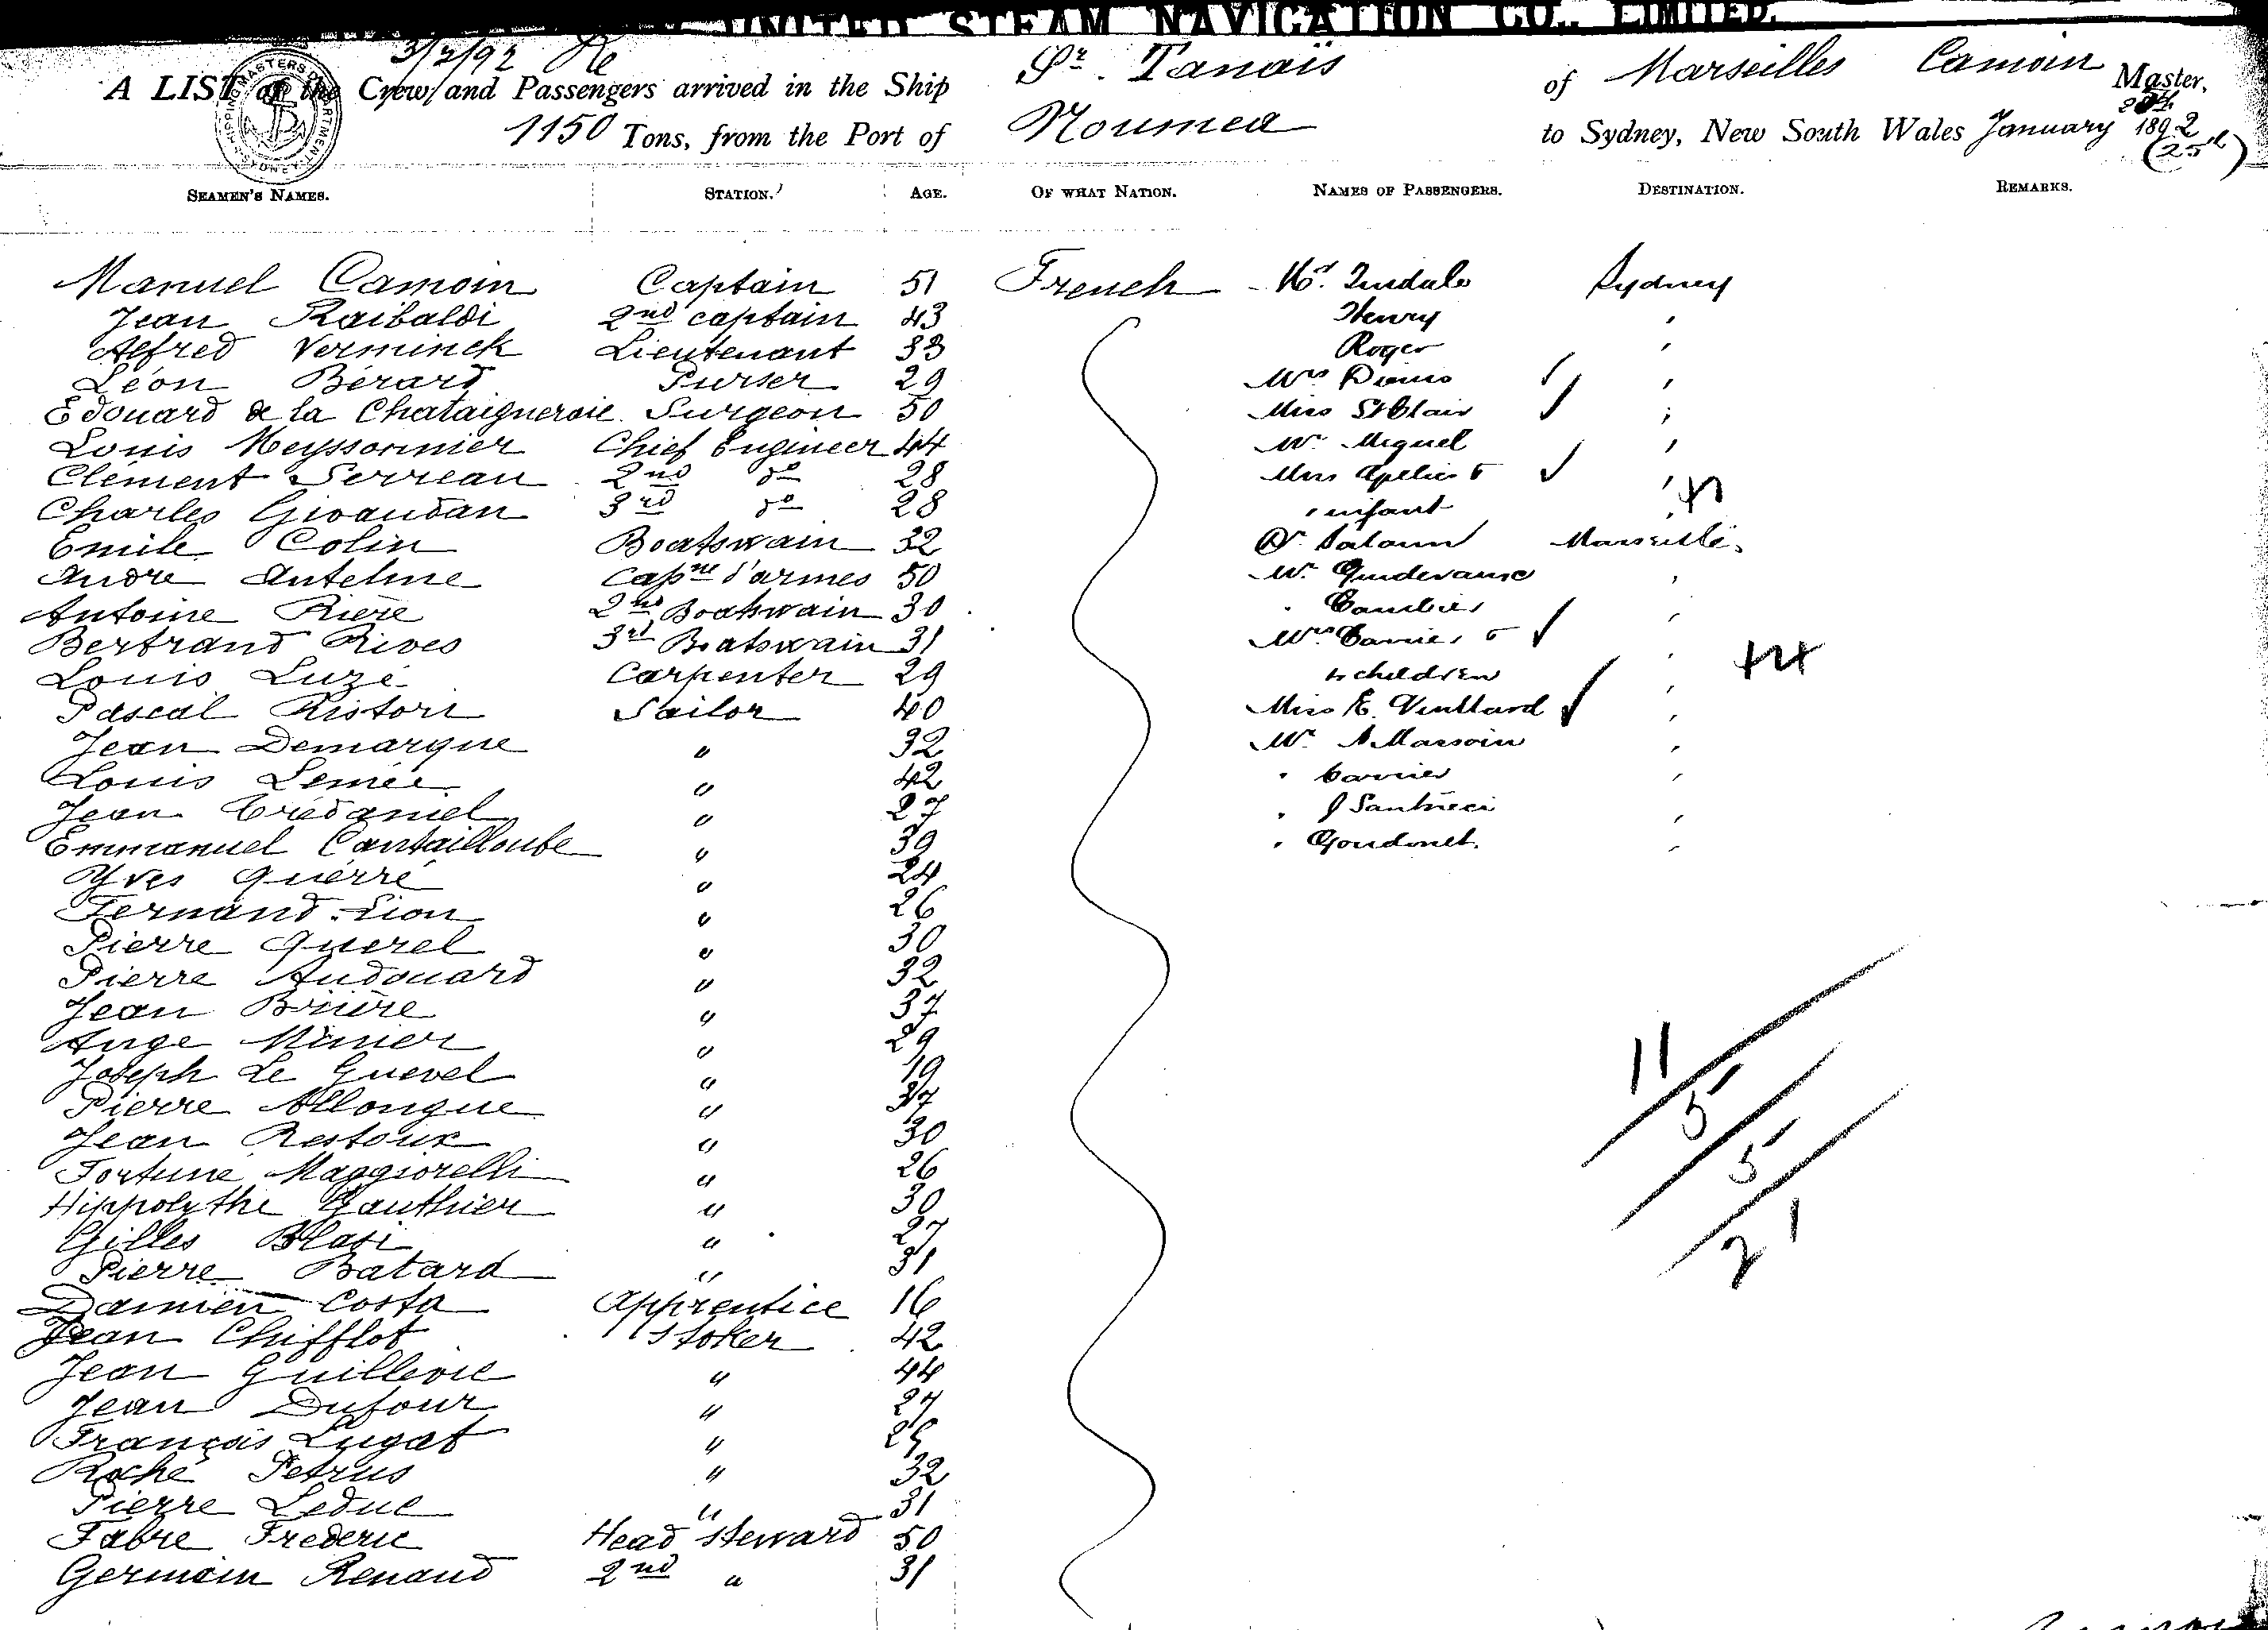 UNITED STEAM NAVIGATION CO., LIMITED.
3/2/92
A LIST of the Crew and Passengers arrived in the Ship Sr. Tanaïs of Marseilles Camoin Master,
1150 Tons, from the Port of Noumea to Sydney, New South Wales January 1892
(25th)
SEAMEN'S NAMES. STATION. AGE. OF WHAT NATION. NAMES OF PASSENGERS. DESTINATION. REMARKS.
Manuel Camoin Captain 51 French Tindale Sydney
Jean Raibaldi 2nd captain 43 Henry "
Alfred Verminck Lieutenant 33 Roger "
Léon Bérard Purser 29 Mrs "
Edouard de la Chataigneraie Surgeon 50 Miss St Clair "
Louis Meyssonnier Chief Engineer 44 Mr. Miguel "
Clément Serreau 2nd do 28 "
Charles Givaudan 3rd do 28 " infant "
Emile Colin Boatswain 32 Marseille
André Antelme Capne d'armes 50 Mr. "
Antoine Riere 2nd Boatswain 30 "
Bertrand Rives 3rd Boatswain 31 Mrs "
Louis Luzé Carpenter 29 4 children "
Pascal Ristori Sailor 40 Miss E. "
Jean Demarque " 32 Mr. A Marsoin "
Louis Lemée " 42 " Carrier "
Jean Crédaniel " 27 " J Santucci "
Emmanuel Cantailloube " 39 " Goudonet. "
Yves Guerré " 24
Fernand Lion " 26
Pierre Querel " 30
Pierre Audouard " 32
Jean Brière " 37
Ange Minier " 29
Joseph Le Guevel " 19
Pierre Allongue " 37
Jean Restoux " 30
Fortune Maggiorelli " 26
Hippolythe Gauthier " 30
Gilles Blasi " 27
Pierre Batard " 31
Damien Costa Apprentice 16
Jean Chifflot Stoker 42
Jean Guillevic " 44
Jean Dufour " 27
François Lugat "
Roché Petrus " 32
Pierre Leduc " 31
Fabre Frederic Head Steward 50
Germain Renaud 2nd " 31
11/5/5/21